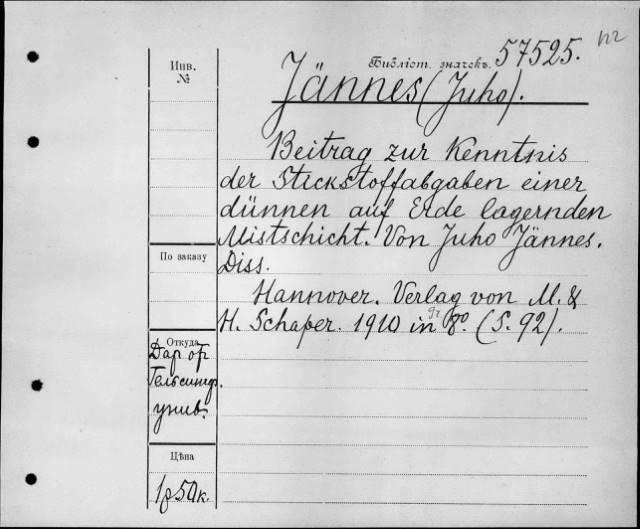 Библіот. значекъ. 57525.
Инв.
№
Jännes (Juho).
Beitrag zur Kenntnis
der Stickstoffabgaben einer
dünnen auf Erde lagernden
Mistschicht. Von Juho Jännes.
Diss.
Hannover. Verlag von M. &
H. Schaper. 1910 in gr 8º. (S. 92).
По заказу
Откуда
Дар от
Гельсингф.
унив.
Цѣна
1р 50к.